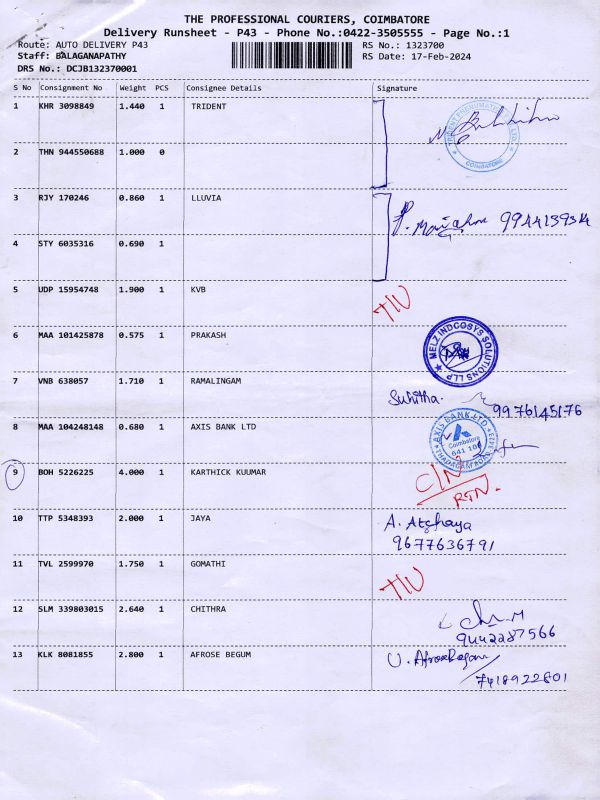 THE PROFESSIONAL COURIERS, COIMBATORE
Delivery Runsheet - P43 - Phone No.:0422-3505555 - Page No.:1
Route: AUTO DELIVERY P43 RS No.: 1323700
Staff: BALAGANAPATHY RS Date: 17-Feb-2024
DRS No.: DCJB132370001
S No Consignment No Weight PCS Consignee Details Signature
1 KHR 3098849 1.440 1 TRIDENT
COIMBATORE
2 THN 944550688 1.000 0
3 RJY 170246 0.860 1 LLUVIA
4 STY 6035316 0.690 1
5 UDP 15954748 1.900 1 KVB
6 MAA 101425878 0.575 1 PRAKASH
MELZ INDCOSYS SOLUTIONS LLP
7 VNB 638057 1.710 1 RAMALINGAM
Suhitha.
9976145176
8 MAA 104248148 0.680 1 AXIS BANK LTD
AXIS BANK LTD.
Coimbatore
9 BOH 5226225 4.000 1 KARTHICK KUUMAR
C/N
RTN.
10 TTP 5348393 2.000 1 JAYA A. Atchaya
9677636791
11 TVL 2599970 1.750 1 GOMATHI
12 SLM 339803015 2.640 1 CHITHRA
9442287566
13 KLK 8081855 2.800 1 AFROSE BEGUM U. AfroseBegum
7418922801